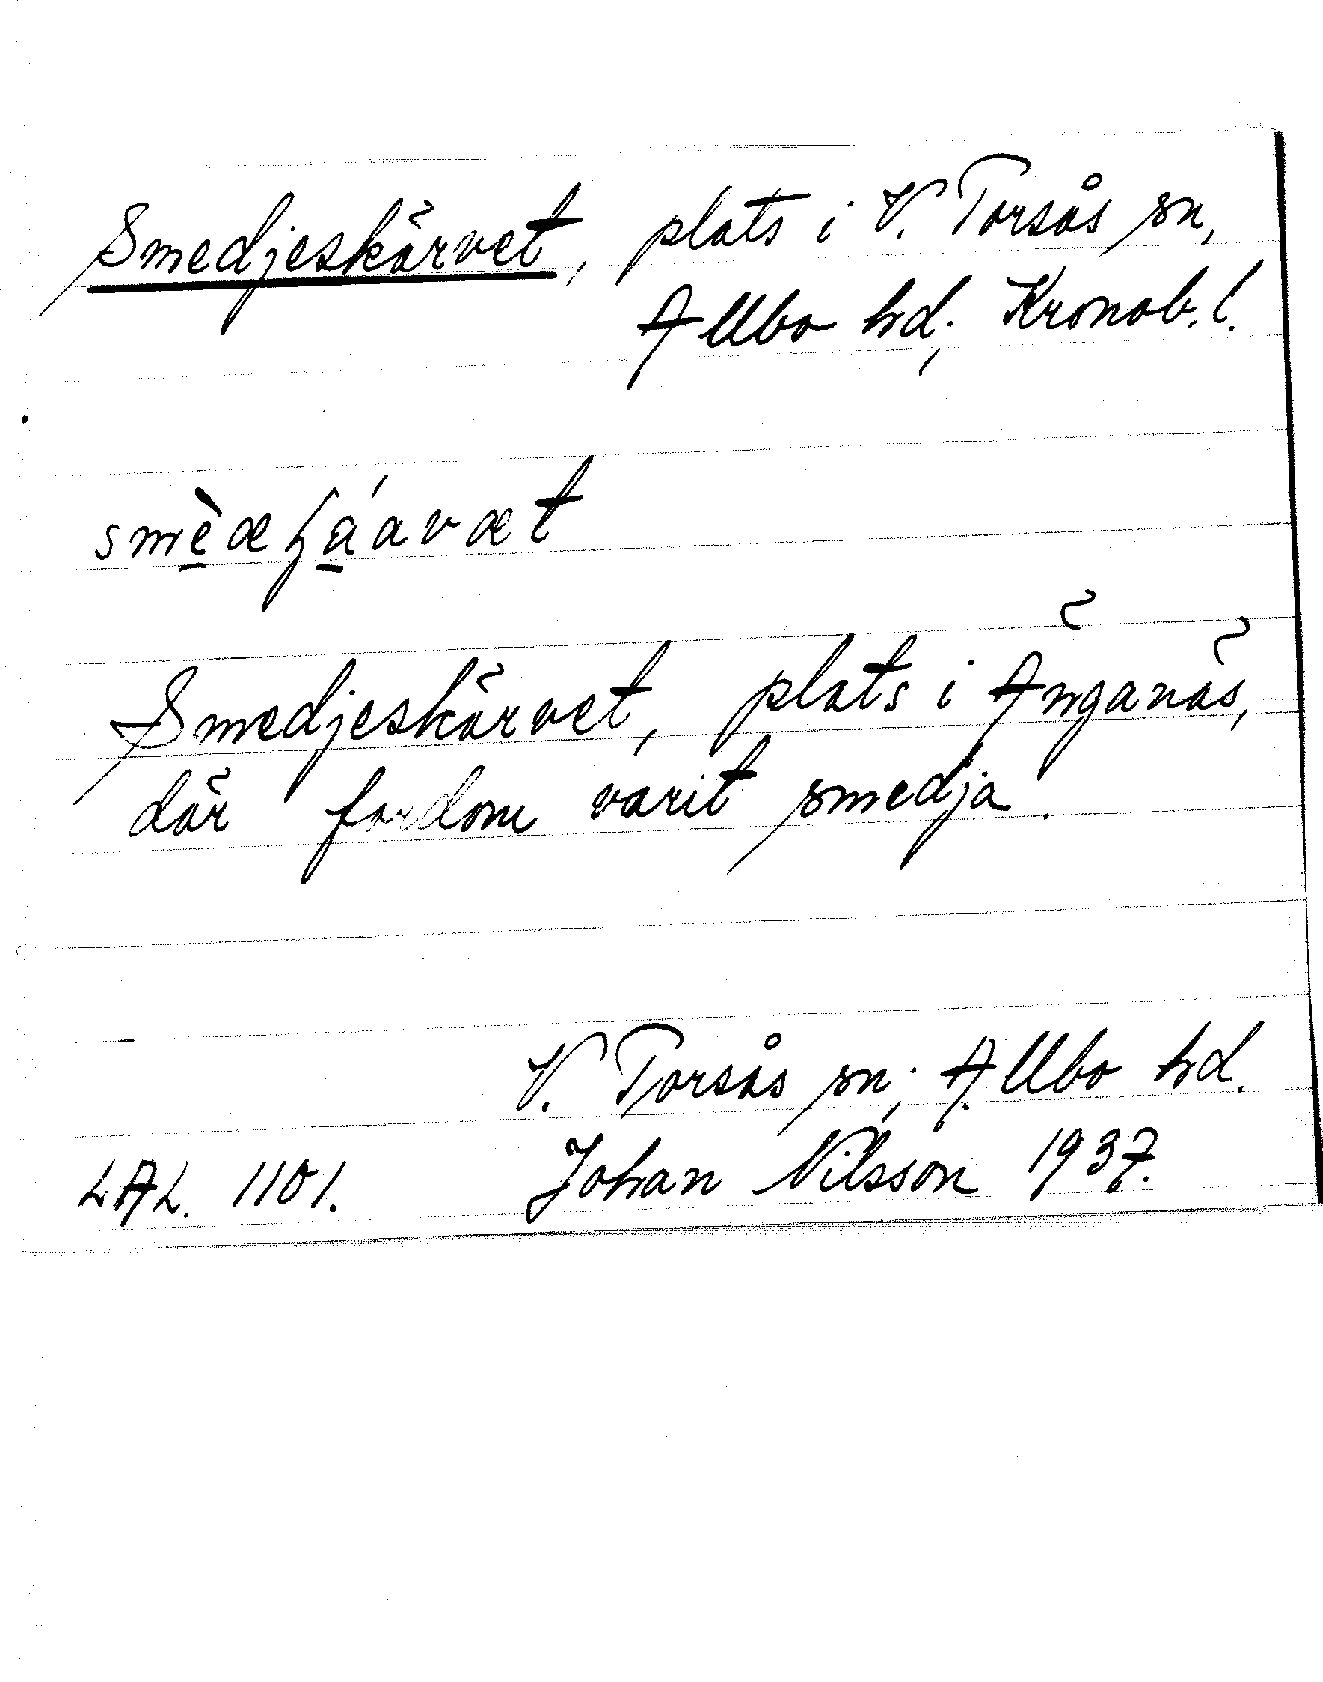 Smedjeskärvet, plats i V. Torsås sn,
Allbo hd; Kronob. l.
Smedjeskärvet, plats i Änganäs,
där fordom varit smedja.
V. Torsås sn; Allbo hd.
LAL. 1101. Johan Nilsson 1937.